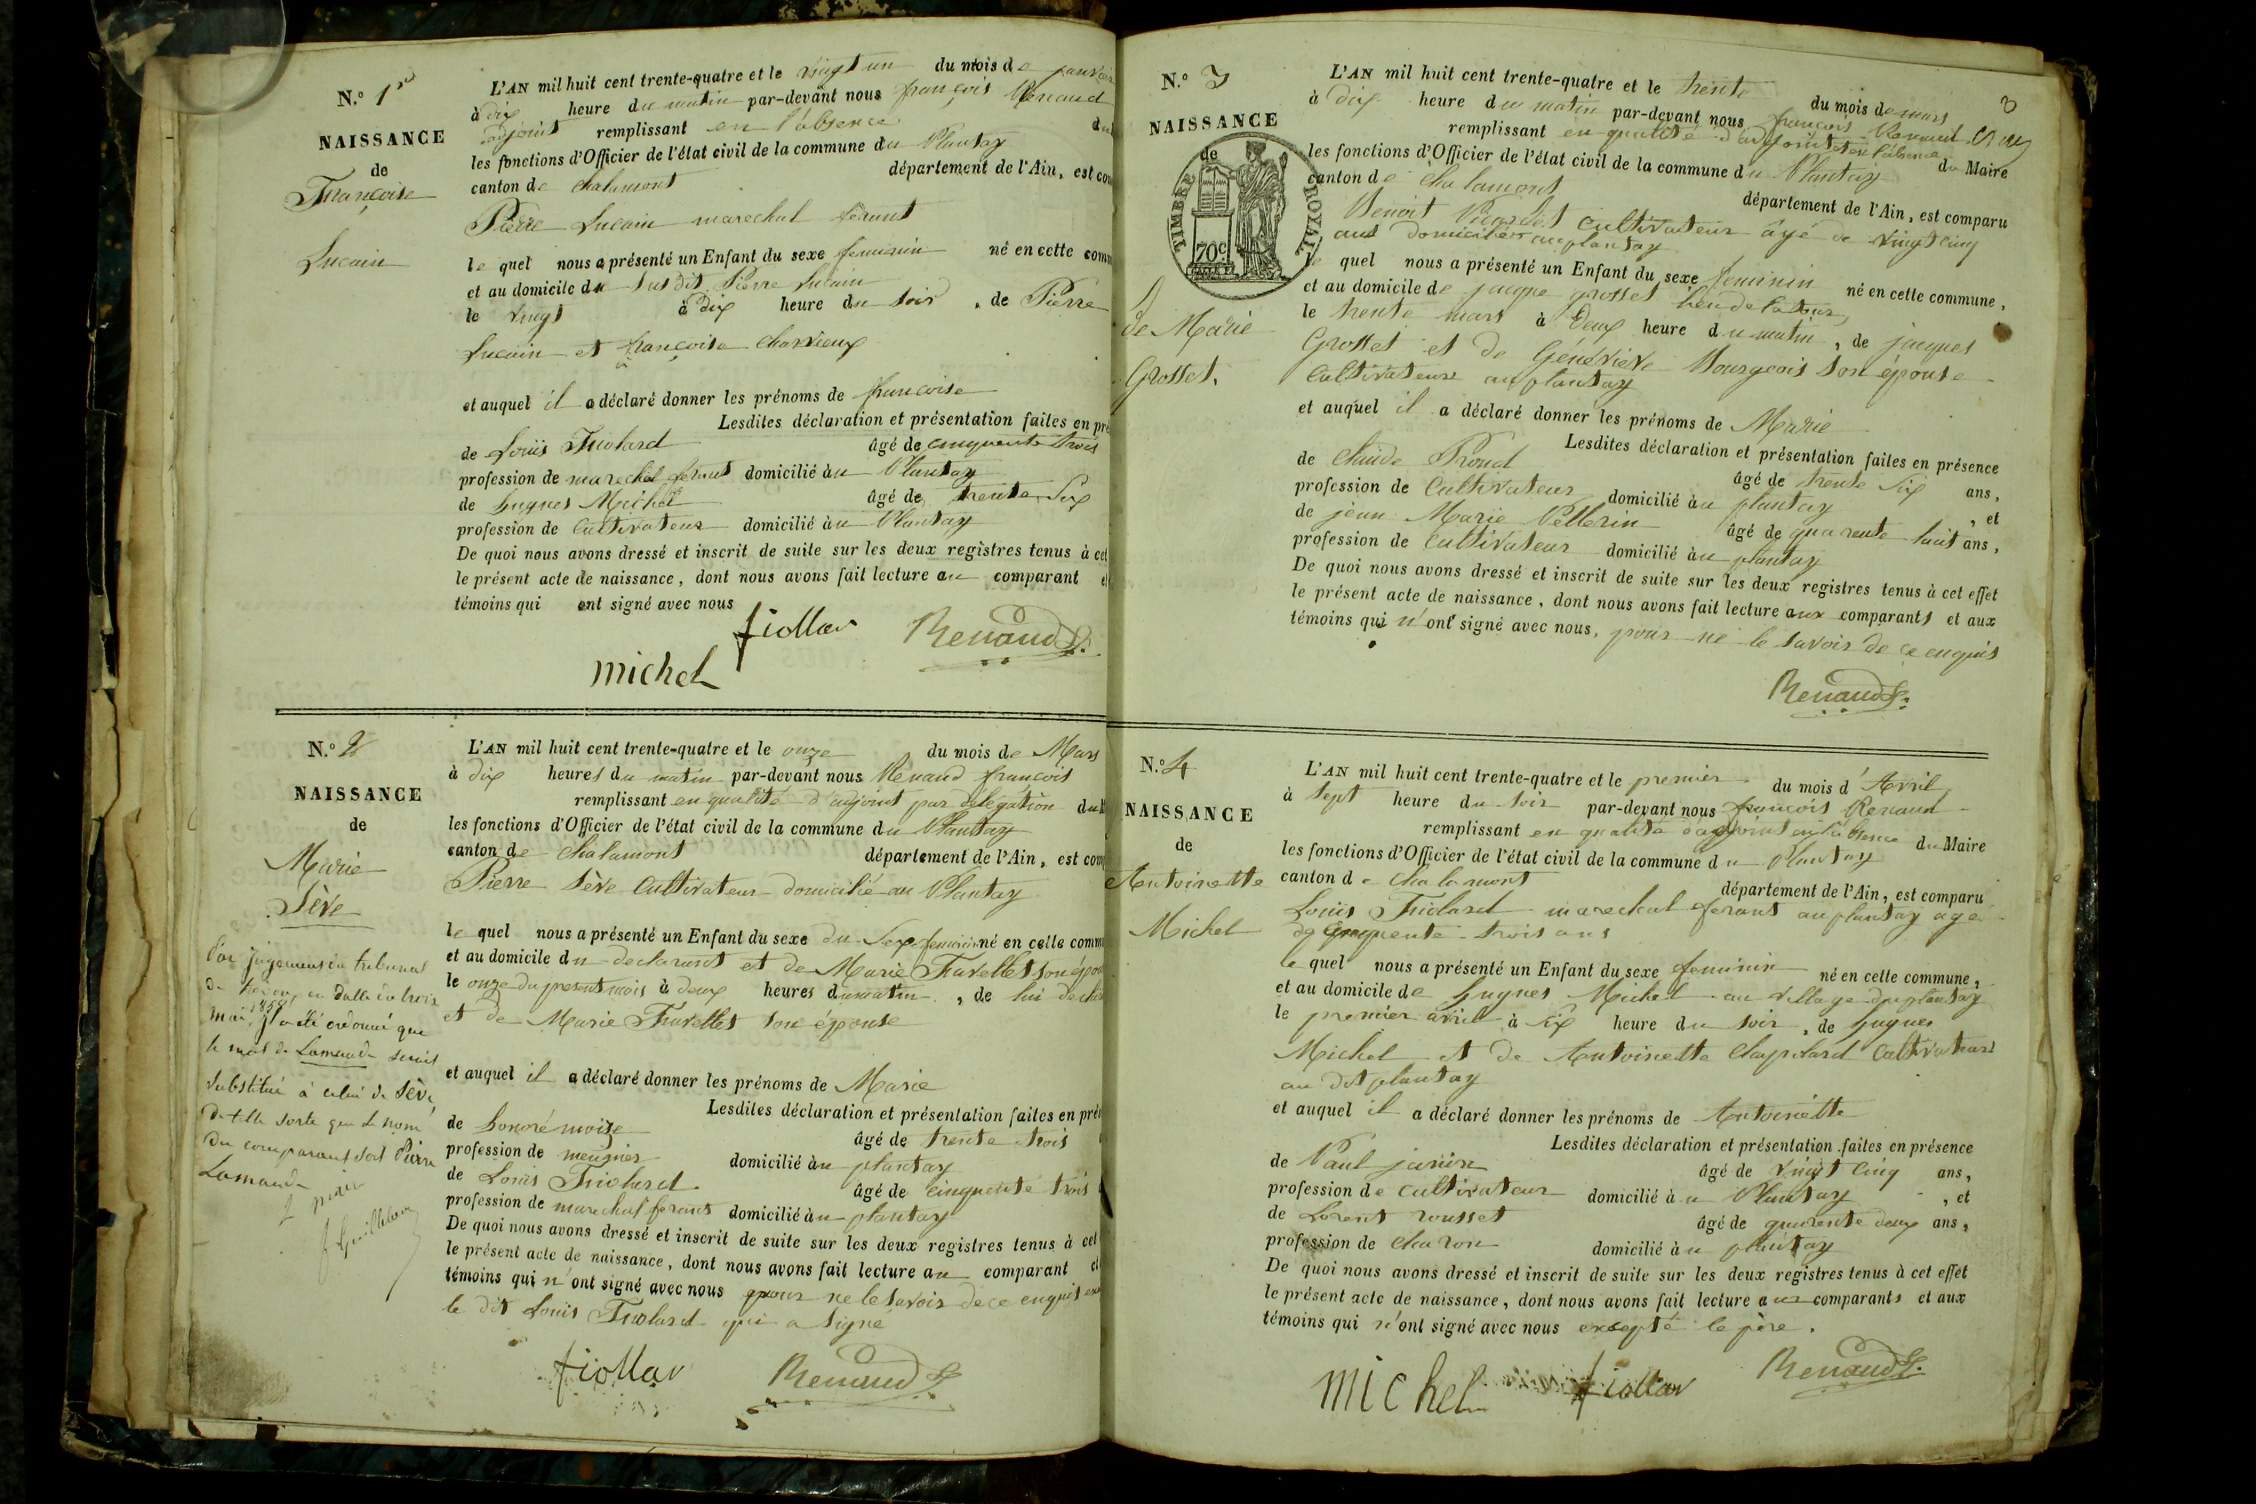 N.º 1er
NAISSANCE
de
Françoise
Lucain
L'AN mil huit cent trente-quatre et le vingt un du mois de janvier
à dix heure du matin par-devant nous françois Renaud
adjoint remplissant en l'absence du
les fonctions d'Officier de l'état civil de la commune du Plantay
canton de chalamont département de l'Ain, est com
Pierre Lucain marechal ferant
le quel nous a présenté un Enfant du sexe feminin né en cette comm
et au domicile du susdit Pierre Lucain
le vingt à dix heure du soir, de Pierre
Lucain et françoise Charvieux
et auquel il a déclaré donner les prénoms de francoise
Lesdites déclaration et présentation faites en pré
de Louis Triolard âgé de cinquente trois
profession de marechal ferant domicilié àu Plantay
de hugues Michel âgé de trente six
profession de Cultivateur domicilié àu Plantay
De quoi nous avons dressé et inscrit de suite sur les deux registres tenus à cet
le présent acte de naissance, dont nous avons fait lecture au comparant et
témoins qui ont signé avec nous
fiollar Renaud
michel
N.º 2
NAISSANCE
de
Marie
Sève
Par jugement du tribunal
de trévoux en datte du trois
mai 1859 il a été ordonné que
le mot de Lamande serait
substitué à celui de Sève,
de telle sorte que le nom
du comparant soit Pierre
Lamande
L'AN mil huit cent trente-quatre et le onze du mois de Mars
à dix heures du matin par-devant nous Renaud françois
remplissant en qualité d'adjoint par délégation du M
les fonctions d'Officier de l'état civil de la commune du Plantay
canton de chalamont département de l'Ain, est comp
Pierre Sève Cultivateur domicilié au Plantay
le quel nous a présenté un Enfant du sexe du sexe feminin né en celle comm
et au domicile du declarant et de Marie Travellet son épou
le onze du present mois à deux heures du matin, de lui decla
et de Marie Travellet son épouse
et auquel il a déclaré donner les prénoms de Marie
Lesdites déclaration et présentation faites en pré
de honoré moize âgé de trente trois
profession de meugnier domicilié àu plantay
de Louis Triolard âgé de cinquente trois
profession de marechal ferant domicilié àu plantay
De quoi nous avons dressé et inscrit de suite sur les deux registres tenus à cet
le présent acte de naissance, dont nous avons fait lecture au comparant et
témoins qui n'ont signé avec nous pour ne le savoir de ce enquis ex
le dit Louis Triolard qui a signé
fiollar Renaud
3
N.º 3
NAISSANCE
de
TIMBRE ROYAL
70c
de Marie
Grosset.
L'AN mil huit cent trente-quatre et le trente du mois de mars
à dix heure du matin par-devant nous françois Renaud
remplissant en qualité d'adjoint en l'absence du Maire
les fonctions d'Officier de l'état civil de la commune du Plantay
canton de chalamont département de l'Ain, est comparu
Benoit cultivateur âgé de vingt cinq
ans domicilié au plantay
le quel nous a présenté un Enfant du sexe feminin né en cette commune,
et au domicile de jacque grosset lieu de la tour,
le trente mars à deux heure du matin, de jacques
Grosset et de Généviève Bourgeois son épouse
Cultivateurs au plantay
et auquel il a déclaré donner les prénoms de Marie
Lesdites déclaration et présentation faites en présence
de Claude Proud âgé de trente six ans,
profession de Cultivateur domicilié àu plantay, et
de jean Marie Pellerin âgé de quarente huit ans,
profession de Cultivateur domicilié àu plantay
De quoi nous avons dressé et inscrit de suite sur les deux registres tenus à cet effet
le présent acte de naissance, dont nous avons fait lecture aux comparants et aux
témoins qui n'ont signé avec nous, pour ne le savoir de ce enquis
Renaud
N.º 4
NAISSANCE
de
Antoinette
Michel
L'AN mil huit cent trente-quatre et le premier du mois d'Avril
à sept heure du soir par-devant nous françois Renaud
remplissant en qualité d'adjoint en l'absence du Maire
les fonctions d'Officier de l'état civil de la commune du Plantay
canton de chalamont département de l'Ain, est comparu
Louis Triolard marechal ferant au plantay age
de cinquente trois ans
le quel nous a présenté un Enfant du sexe feminin né en celle commune,
et au domicile de hugues Michel au village du plantay
le premier avril à six heure du soir, de hugues
Michel et de Antoinette Chapelard Cultivateurs
au dit plantay
et auquel il a déclaré donner les prénoms de Antoinette
Lesdites déclaration et présentation faites en présence
de Paul janin âgé de vingt cinq ans,
profession de cultivateur domicilié àu Plantay, et
de Lorent rousset âgé de quarente deux ans,
profession de charon domicilié àu plantay
De quoi nous avons dressé et inscrit de suite sur les deux registres tenus à cet effet
le présent acte de naissance, dont nous avons fait lecture aux comparants et aux
témoins qui n'ont signé avec nous excepté le père.
michel fiollar Renaud